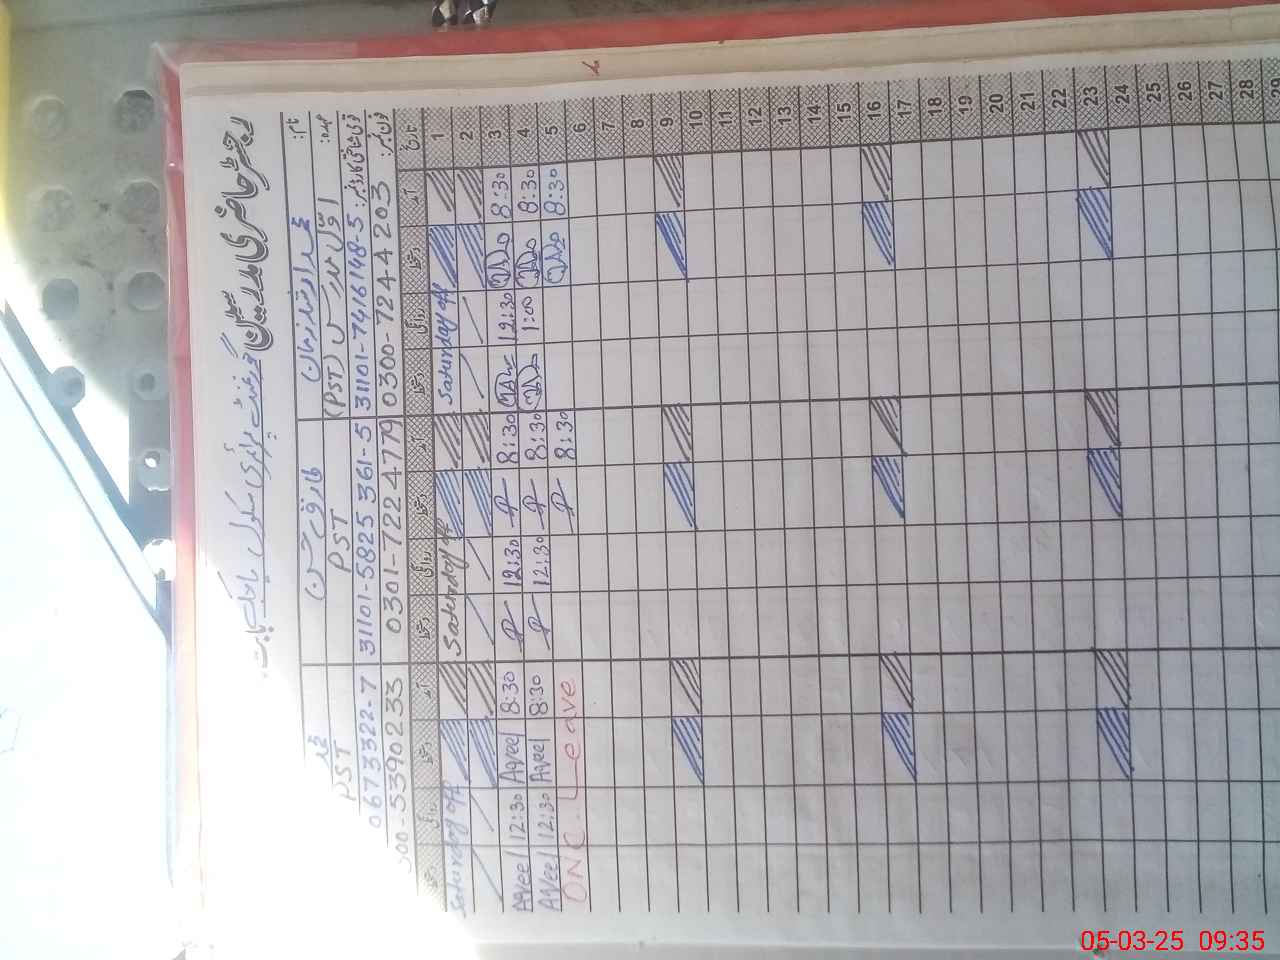 رجسٹر حاضری مدرسین
گورنمنٹ پرائمری سکول
نام:
عہدہ:
قومی شناختی کارڈ نمبر:
فون نمبر:
(PST)
31101-7416148-5
0300-7244203
PST
31101-5825361-5
0301-7224779
محمد
PST
0673322-7
00-5390233
تاریخ آمد دستخط روانگی دستخط آمد دستخط روانگی دستخط آمد دستخط روانگی دستخط
1 Saturday off Saturday off Saturday off
2
3 8:30 12:30 8:30 12:30 8:30 Aqeel 12:30 Aqeel
4 8:30 1:00 8:30 12:30 8:30 Aqeel 12:30 Aqeel
5 8:30 8:30 ONE Leave
6
7
8
9
10
11
12
13
14
15
16
17
18
19
20
21
22
23
24
25
26
27
28
29
05-03-25 09:35